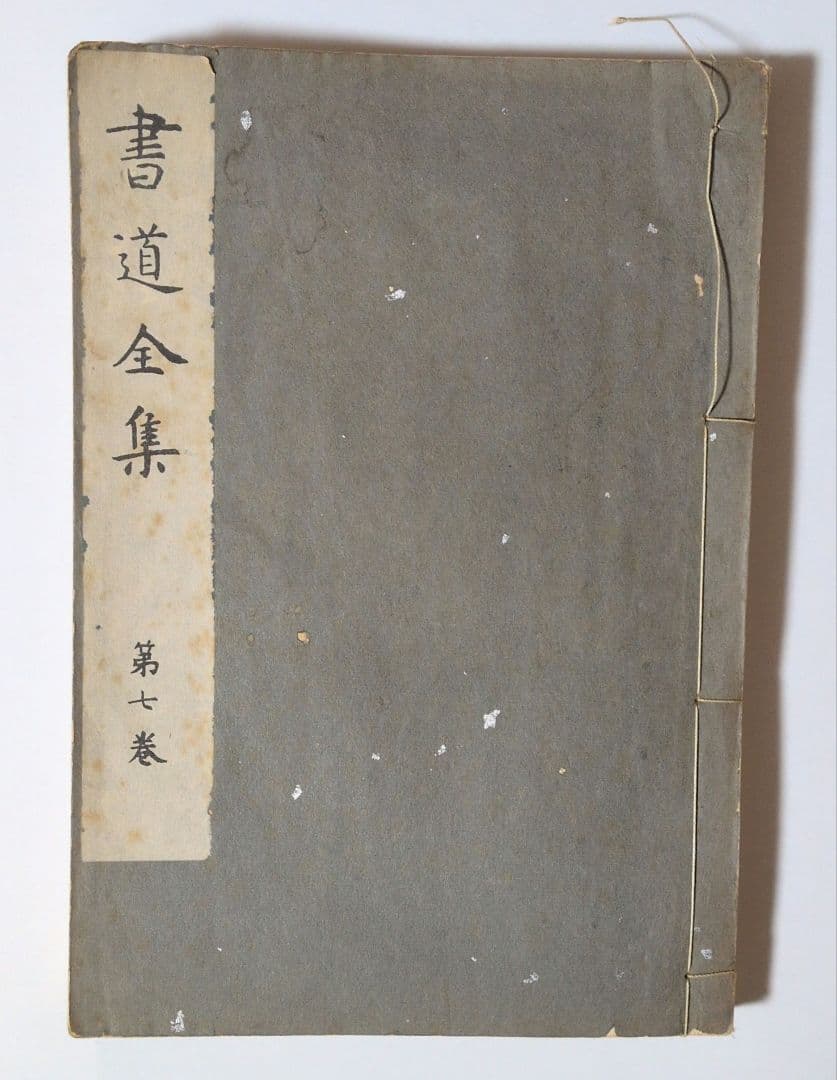 書道全集
第七巻